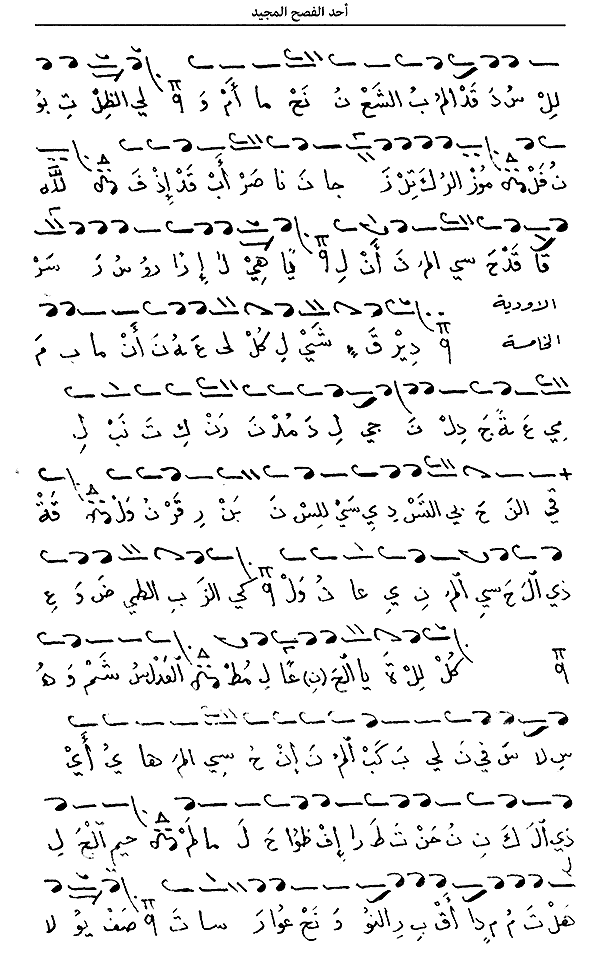 أحد الفصح المجيد
لِلْ سُ دَ قَدْ المُ بُ الشَعْ نُ نَحْ ما أَمْ وَ لي الظِلْ تِ بو
نُ فَلْ مُوْزْ الرُ كَ تِلْ زَ جا نَ نا صَرْ أَبْ قَدْ إِذْ فَ للّٰه
قا قَدْ حَ سي المَ نَ أَنْ لِ يا هِيْ لا إِ ذا رو سُ رَ سَرْ
الاودية
الخامسة دِيْرْ قَ ءٍ شَيْ لِ كُلْ لى عَ هُ نَ أَنْ ما بِ مَ
مِي عَ ةً جَ دِلْ تَ جي لِ دَ مُدْ نَ رَنْ كِ تَ نَبْ لِ
في النَ حَ بي الشَرْ دِ ي سَيْ لِلسْ نَ بَنْ رِ قَرْ نُ وَلْ قَةْ
ذي اَلْ حَ سي اَلْمَ نِ يِ عا نُ وَلْ كي الزَ بِ الطي ضَ وَ عِ
كُلْ لِلْ ةَ يا اَلْحَ (نِ) عًا لِ مُطْ القُدْسُ شَمْ وَ هُ
سِ لا سَ في نَ لي بَ كَبْ اَلْمَ نَ إِنْ حُ سي المَ ها يُ أَيْ
ذي اَلْ كَ نِ نُ حَنْ تَ طَ را إِفْ ظوا حَ لَ ما لَمْ حيمِ اَلْجَ لِ
هَلْ تَ مُ مِ دا أَقْ بِ رِ النو وَ نَحْ عُوا رَ سا تَ صَفْ يوُ لا